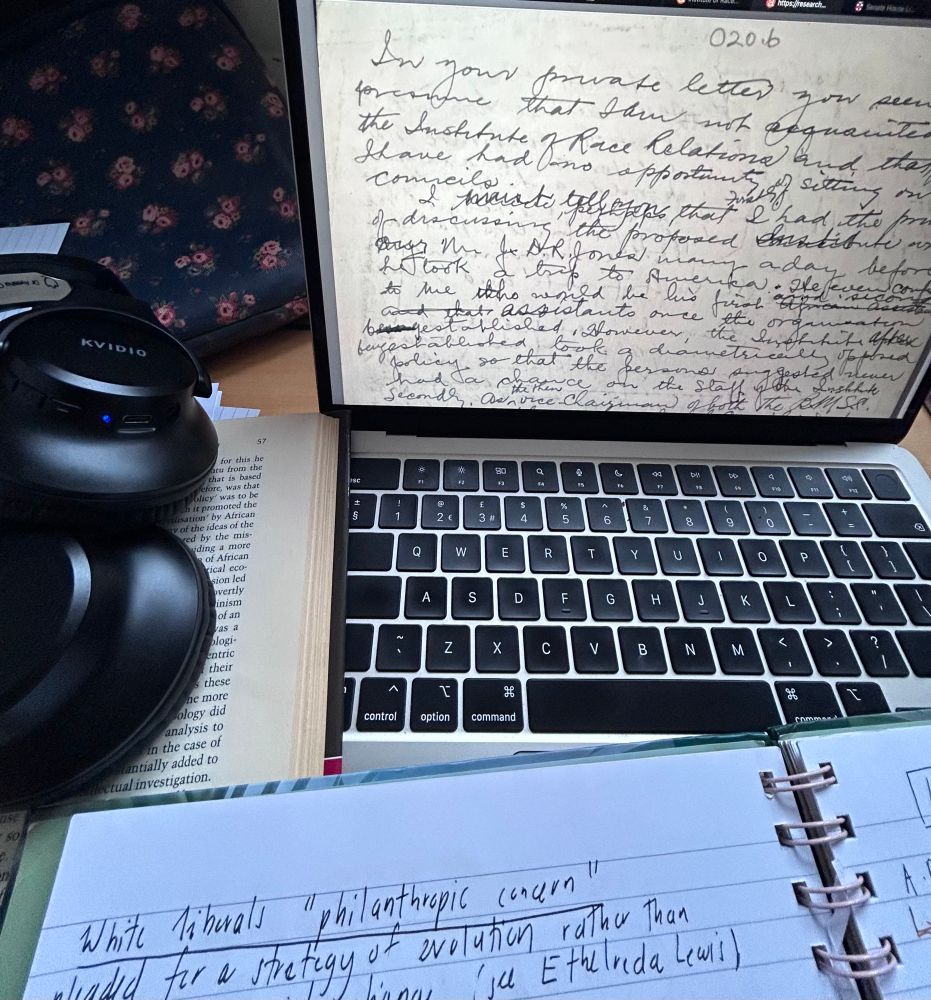 Institute of Race...
https://research...
Senate House Li...
020.b
In your private letter you seem
presume that I am not acquainted
the Institute of Race Relations and that
I have had no opportunity of sitting on
councils.
I must tell you, perhaps first of that I had the
of discussing the proposed Institute
Mr. J. D. R. Jones many a day before
he took a trip to America. He even
to me who would be his first and second
and that assistants once the organisation
established. However, the Institute
established took a diametrically opposed
policy so that the persons suggested never
had a chance on the staff of the Institute
secondly, as vice Chairman of both the
KVIDIO
57
for this he
ntu from the
that is based
efore, was that
olicy' was to be
h it promoted the
ilisation' by African
ny of the ideas of the
red by the mis-
iding a more
e of African
rical eco-
sion led
overtly
inism
of an
was a
ologi-
entric
their
s these
ne more
ology did
analysis to
in the case of
tantially added to
ellectual investigation.
esc F1 F2 F3 F4 F5 F6 F7 F8 F9 F10 F11 F12
± § ! 1 @ 2 € £ 3 # $ 4 % 5 ^ 6 & 7 * 8 ( 9 ) 0 _ - + =
Q W E R T Y U I O P { [ } ]
A S D F G H J K L : ; " ' | \
~ ` Z X C V B N M < , > . ? /
^ control ⌥ option ⌘ command ⌘ command ⌥
White liberals "philanthropic concern"
pleaded for a strategy of evolution rather than
(see Ethelreda Lewis)